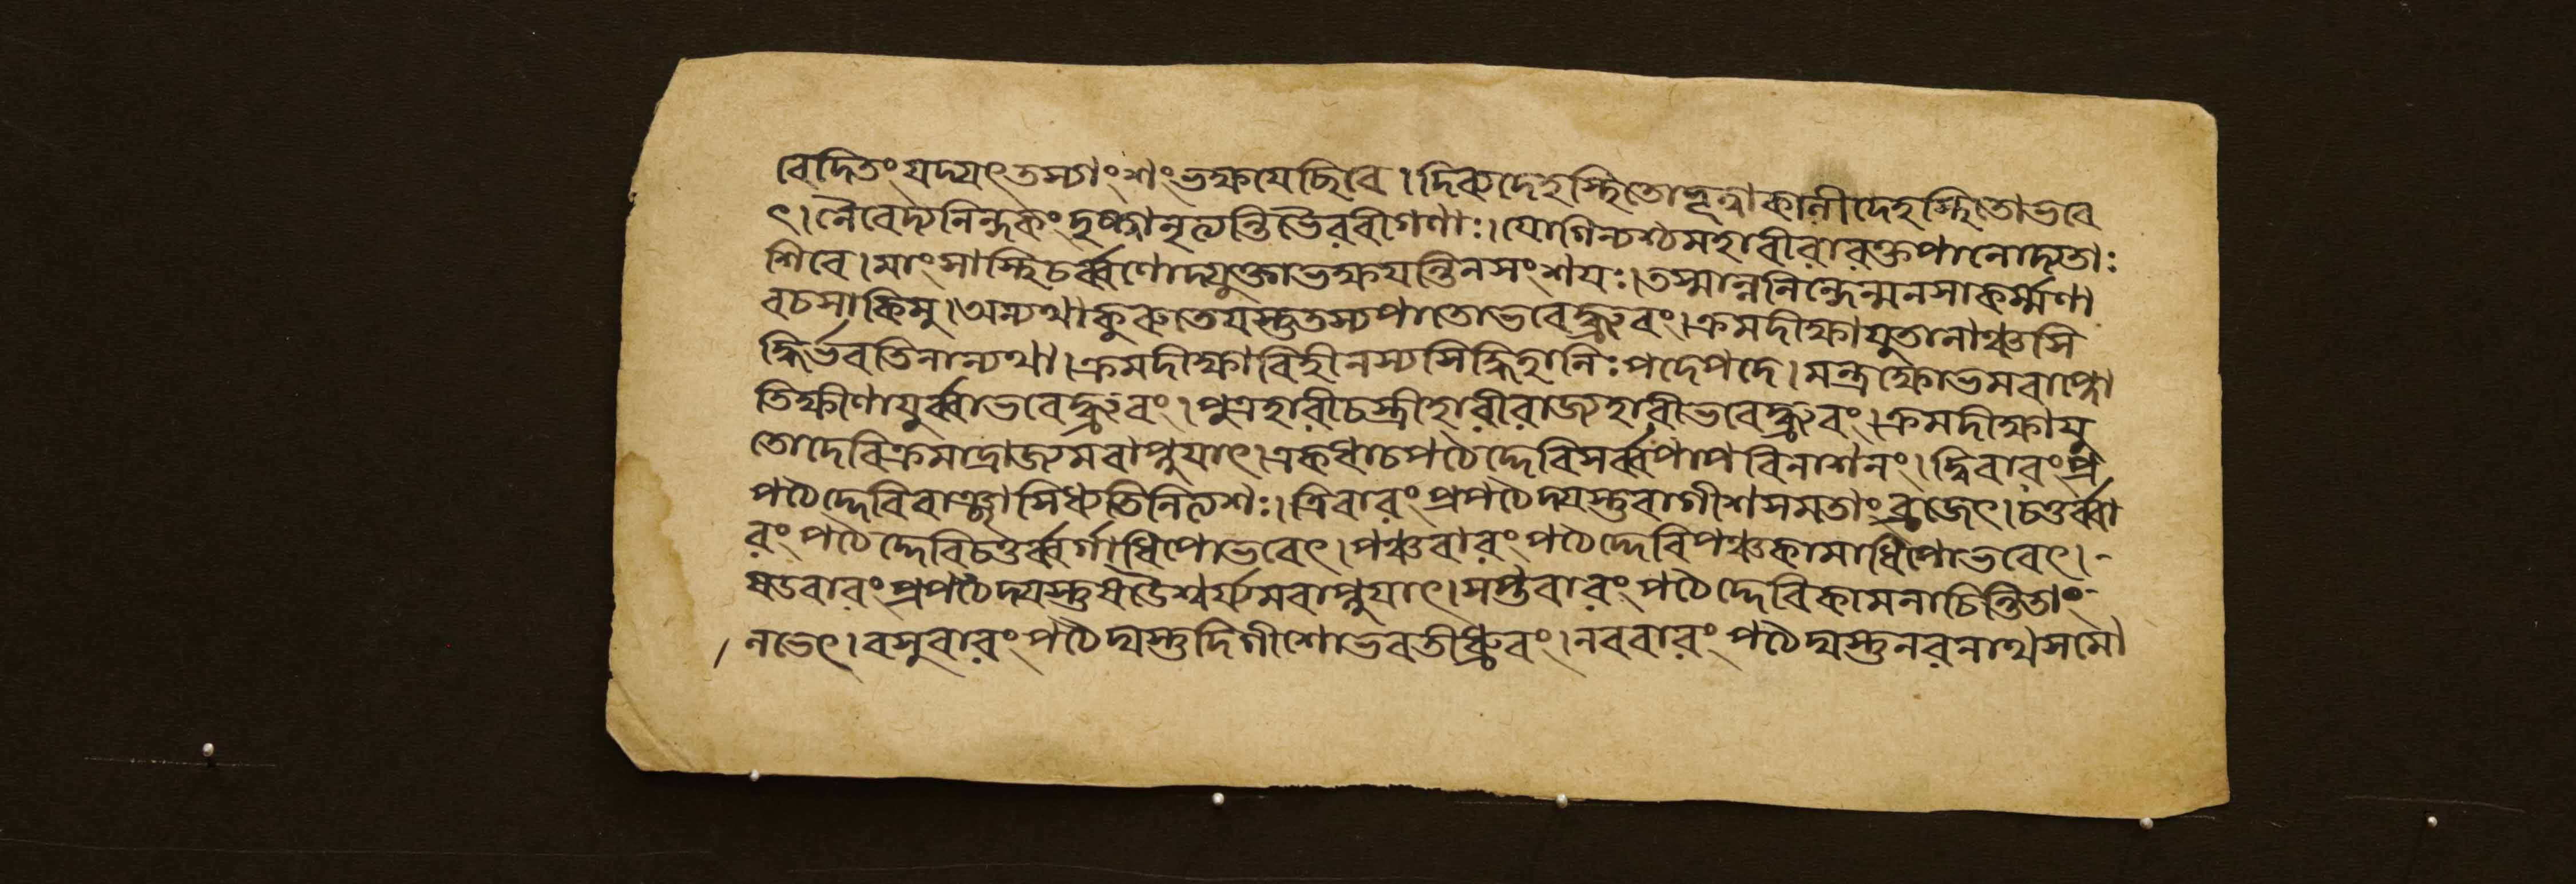 বেদিতং যদ্যৎ তস্যাংশং ভক্ষযেছিবে । দিব্যদেহস্থিতোভূত্বাকালীদেহস্থিতোভবে
ৎ । নৈবেদ্যনিন্দকংদৃষ্ট্বানৃত্যন্তিভৈরবীগণাঃ । যোগিন্যশ্চমহাবীরারক্তপানোদ্যতাঃ
শিবে । মাংসাস্থিচর্ব্বণোদ্যুক্তাভক্ষযন্তিনসংশযঃ । তস্মান্ননিন্দেন্মনসাকর্ম্মণা
বচসাকিমু । অন্যথাকুরুতেযস্তুতস্যপাতোভবেদ্ধ্রুবং । ক্রমদীক্ষাযুতানাঞ্চসি
দ্ধির্ভবতিনান্যথা । ক্রমদীক্ষাবিহীনস্যসিদ্ধিহানিঃপদেপদে । মন্ত্রক্ষোভমবাপ্নো
তিক্ষীণাযুর্ব্বাভবেদ্ধ্রুবং । পুত্রহারীচস্ত্রীহারীরাজ্যহারীভবেদ্ধ্রুবং । ক্রমদীক্ষাযু
তোদেবিক্রমাদ্রাজ্যমবাপ্নুযাৎ । একধাচপঠেদ্দেবিসর্ব্বপাপবিনাশনং । দ্বিবারংপ্র
পঠেদ্দেবিবাঞ্ছাসিধ্যতিনিত্যশঃ । ত্রিবারংপ্রপঠেদ্যস্তুবাগীশসমতাংব্রজেৎ । চতুর্ব্বা
রংপঠেদ্দেবিচতুর্ব্বর্গাধিপোভবেৎ । পঞ্চবারংপঠেদ্দেবিপঞ্চকামাধিপোভবেৎ । -
ষডবারংপ্রপঠেদ্যস্তুষডৈশ্বর্য্যমবাপ্নুযাৎ । সপ্তবারংপঠেদ্দেবিকামনাচিন্তিতাং
নভেৎ । বসুবারংপঠেদ্যস্তুদিগীশোভবতীধ্রুবং । নববারংপঠেদ্যস্তুনরনাথসমো